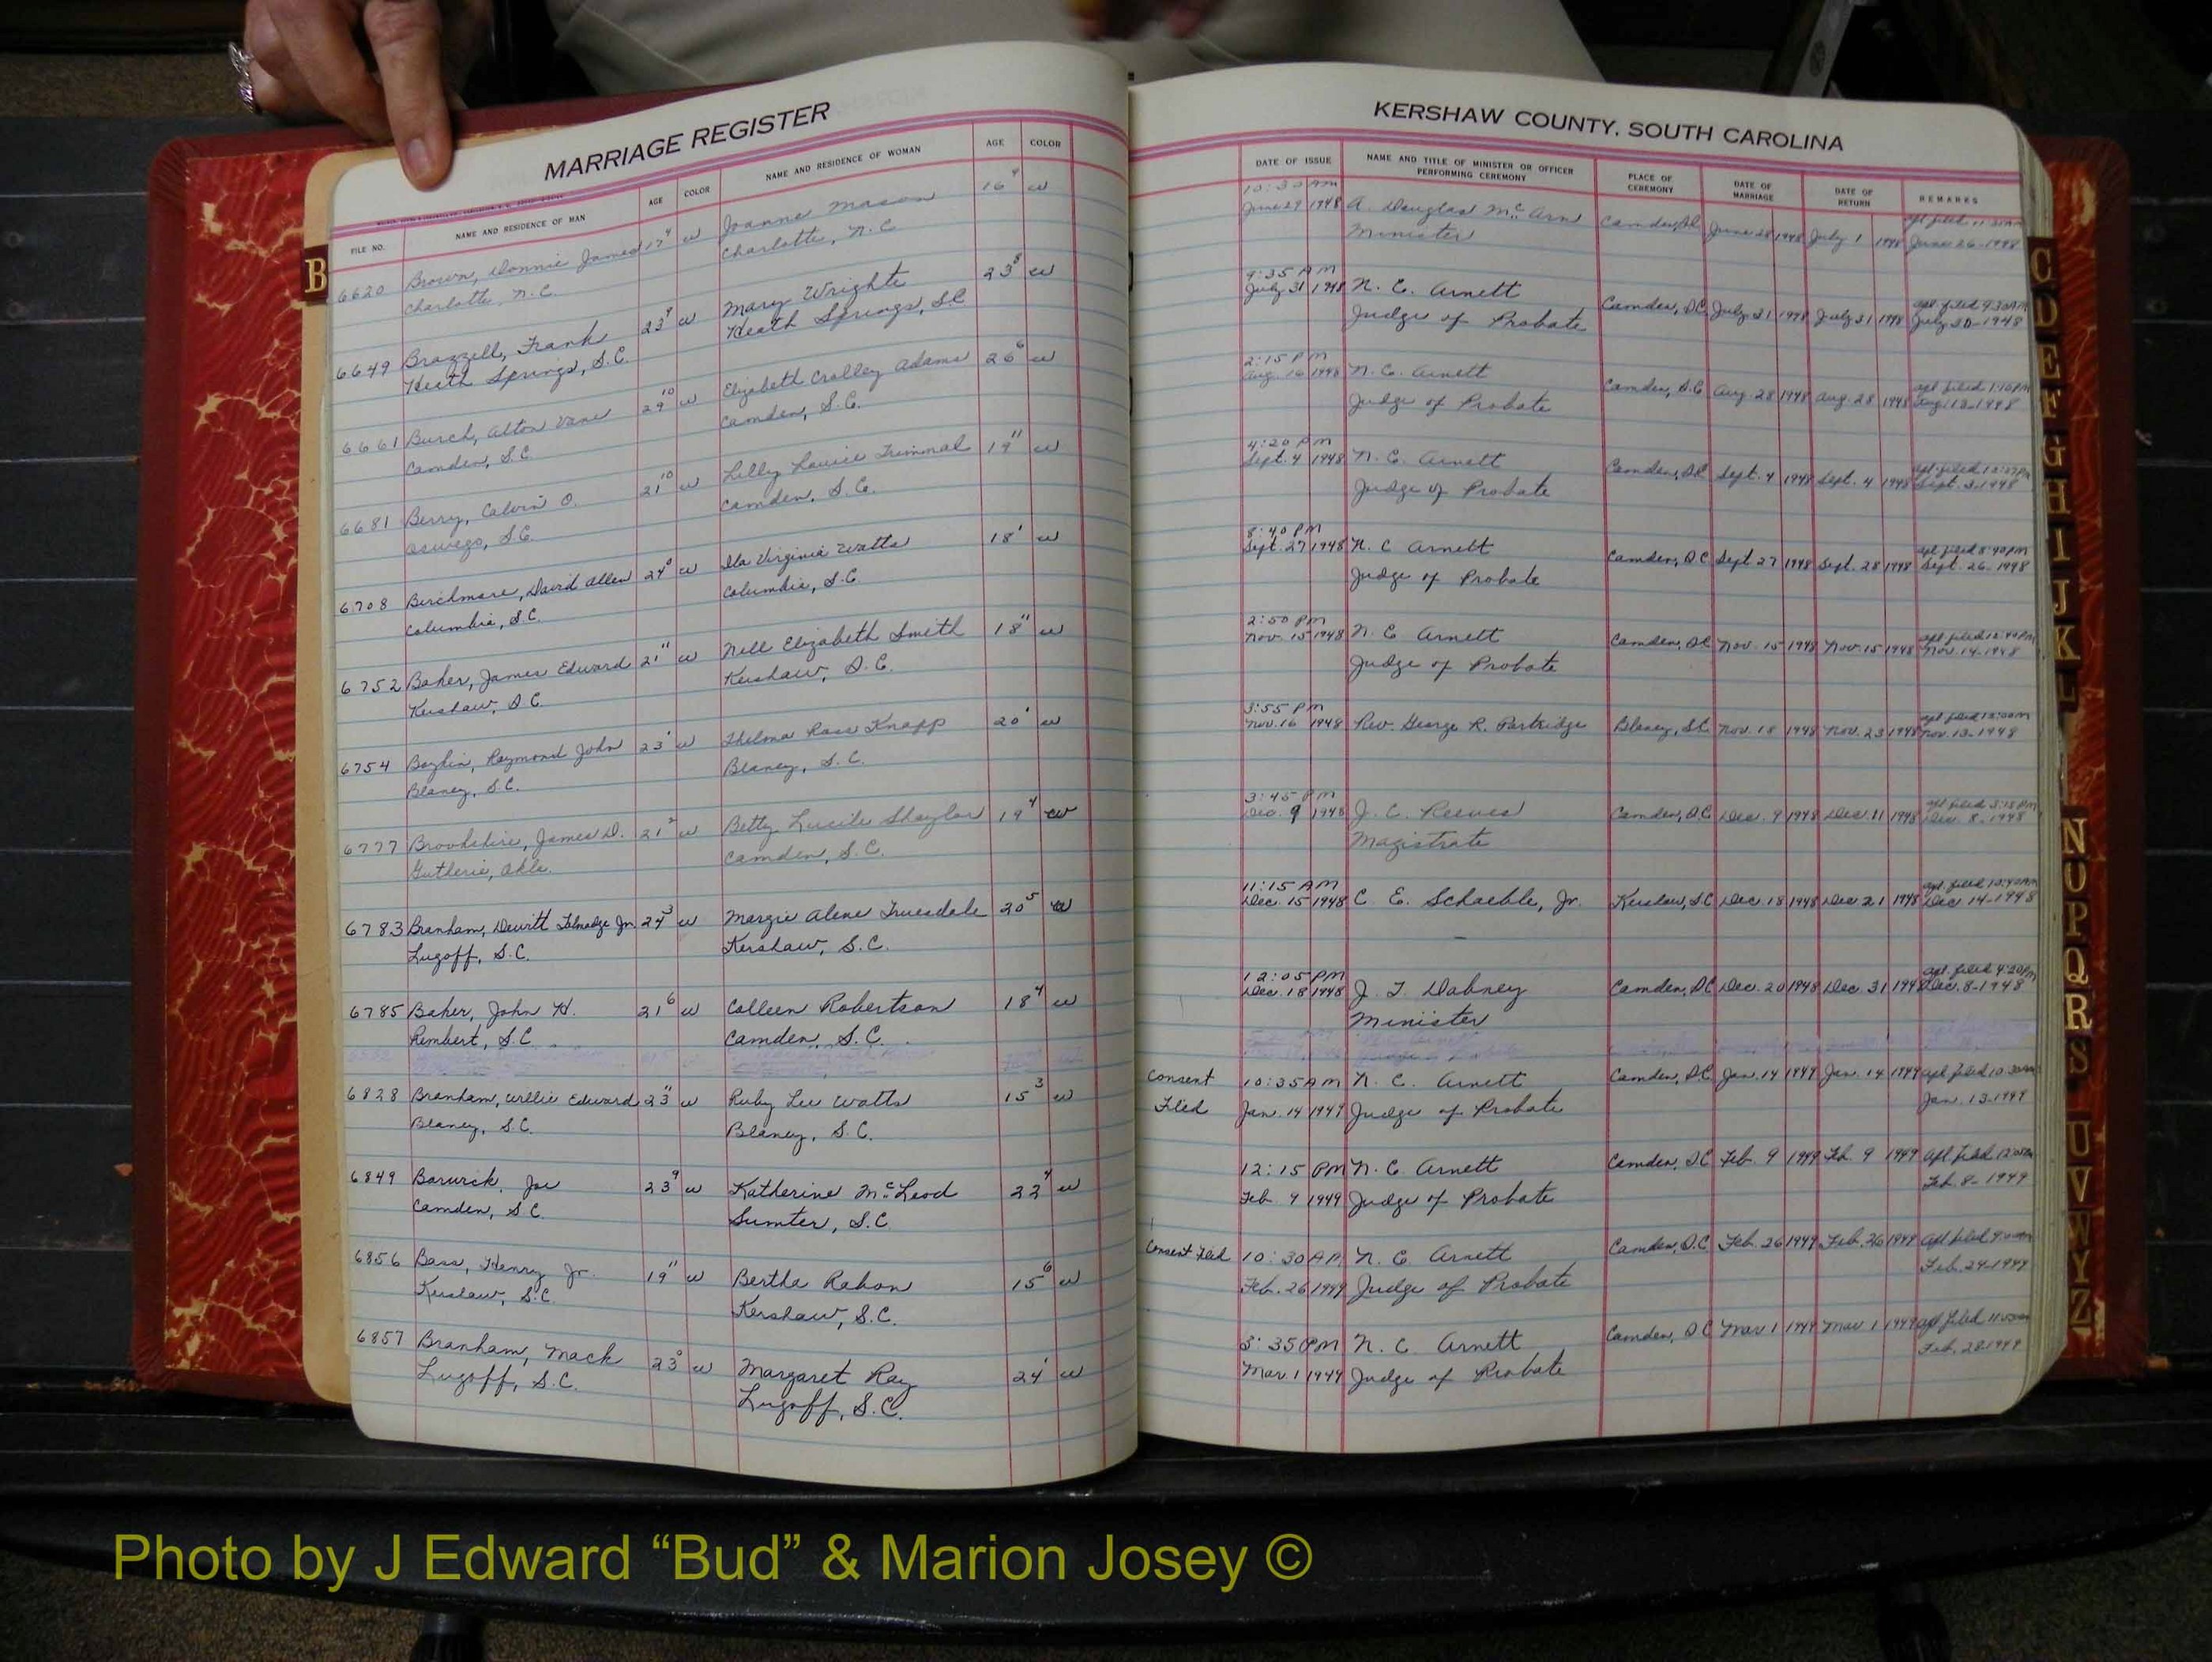 MARRIAGE REGISTER
FILE NO. NAME AND RESIDENCE OF MAN AGE COLOR NAME AND RESIDENCE OF WOMAN AGE COLOR
6620 Brown, Donnie James 17 w Joanne Mason 16 9 w
Charlotte, N.C. Charlotte, N.C.
6649 Brazzell, Frank 23 9 w Mary Wrighte 23 8 w
Heath Springs, S.C. Heath Springs, SC
6661 Burch, Alton Vane 29 10 w Elizabeth Crolley Adams 26 6 w
Camden, S.C. Camden, S.C.
6681 Berry, Calvin O. 21 10 w Lilly Louise Trimmal 19 11 w
Oswego, S.C. Camden, S.C.
6708 Birchmore, David Allen 24 w Ila Virginia Watts 18 1 w
Columbia, S.C. Columbia, S.C
6752 Baker, James Edward 21 11 w Nell Elizabeth Smith 18 11 w
Kershaw, S.C. Kershaw, S.C.
6754 Raymond John 23 1 w Thelma Rose Knapp 20 1 w
Blaney, S.C. Blaney, S.C.
6777 Brookshire, James D. 21 2 w Betty Lucile Shaylor 19 4 w
Guthrie, Okla. Camden, S.C.
6783 Branham, Dewitt Talmadge Jr. 24 3 w Margie Alene Truesdale 20 5 w
Lugoff, S.C. Kershaw, S.C.
6785 Baker, John H. 21 6 w Colleen Robertson 18 4 w
Rembert, S.C. Camden, S.C.
6828 Branham, Willie Edward 23 11 w Ruby Lee Watts 15 3 w
Blaney, S.C. Blaney, S.C.
6849 Barwick, Joe 23 9 w Katherine McLeod 22 4 w
Camden, S.C. Sumter, S.C
6856 Bass, Henry Jr. 19 11 w Bertha Rabon 15 6 w
Kershaw, S.C. Kershaw, S.C.
6857 Branham, Mack 23 w Margaret Ray 24 1 w
Lugoff, S.C. Lugoff, S.C.
B
KERSHAW COUNTY, SOUTH CAROLINA
DATE OF ISSUE NAME AND TITLE OF MINISTER OR OFFICER PERFORMING CEREMONY PLACE OF CEREMONY DATE OF MARRIAGE DATE OF RETURN REMARKS
10:30 AM
June 29 1948 A. Douglas McArn June 28 1948 July 1 1948
Minister June 26-1948
9:35 AM
July 31 1948 N. C. Arnett Camden, S.C. July 31 1948 July 31 1948 apl. filed 9:30AM
Judge of Probate July 30-1948
2:15 PM
Aug. 16 1948 N. C. Arnett Camden, S.C Aug. 28 1948 Aug. 28 1948 apl filed 1:10PM
Judge of Probate
4:20 PM
Sept. 4 1948 N. C. Arnett Camden, S.C Sept. 4 1948 Sept. 4 1948
Judge of Probate Sept. 3-1948
8:40 PM
Sept. 27 1948 N. C Arnett Camden, S.C Sept 27 1948 Sept. 28 1948 apl filed 8:40PM
Judge of Probate Sept. 26-1948
2:50 PM
Nov. 15 1948 N. C Arnett Camden, S.C Nov. 15 1948 Nov. 15 1948 apl filed 12:40PM
Judge of Probate Nov. 14-1948
3:55 PM
Nov. 16 1948 Rev. George R. Partridge Blaney, S.C. Nov. 18 1948 Nov. 23 1948 apl filed
Nov. 13-1948
3:45 PM
Dec. 9 1948 J. C. Reeves Camden, S.C Dec. 9 1948 Dec. 11 1948 apl filed 3:15PM
Magistrate Dec. 8-1948
11:15 AM
Dec. 15 1948 C. E. Schaeble, Jr. Kershaw, S.C Dec. 18 1948 Dec 21 1948 apl. filed 10:40AM
Dec. 14-1948
12:05 PM
Dec. 18 1948 J. T. Dabney Camden, S.C Dec. 20 1948 Dec. 31 1948 apl. filed 4:20PM
Minister Dec. 8-1948
Consent 10:35 AM N. C. Arnett Camden, S.C. Jan. 14 1949 Jan. 14 1949 apl filed 10:30AM
Filed Jan. 14 1949 Judge of Probate Jan. 13-1949
12:15 PM N. C. Arnett Camden, S.C Feb. 9 1949 Feb. 9 1949 apl filed
Feb 9 1949 Judge of Probate Feb. 8-1949
Consent Filed 10:30 AM N. C. Arnett Camden, S.C Feb. 26 1949 Feb. 26 1949 apl filed
Feb. 26 1949 Judge of Probate Feb. 24-1949
35 PM N. C. Arnett Camden, S.C Mar 1 1949 Mar 1 1949 apl filed
Mar. 1 1949 Judge of Probate Feb. 28-1949
C
D
E
F
G
H
I
J
K
L
N
O
P
Q
R
S
U
V
W
Y
Z
Photo by J Edward “Bud” & Marion Josey ©